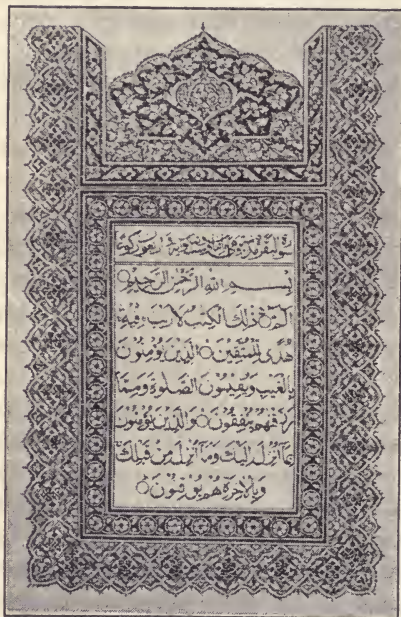 سورة البقرة مدنية وهي
بسم الله الرحمن الرحيم
الم ذلك الكتب لا ريب فيه
هدى للمتقين الذين يؤمنون
بالغيب ويقيمون الصلوة ومما
رزقنهم ينفقون والذين يؤمنون
بما أنزل إليك وما أنزل من قبلك
وبالآخرة هم يوقنون